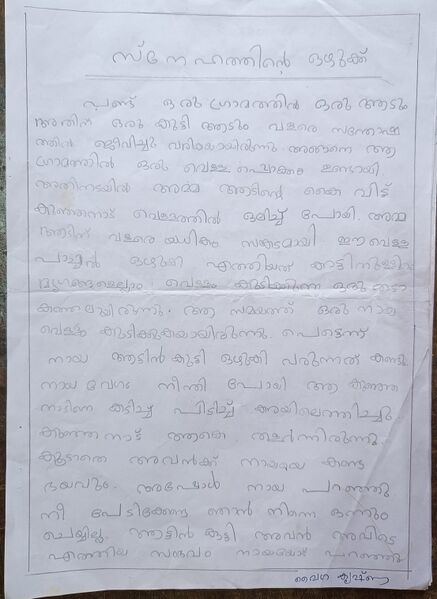 സ്നേഹത്തിന്റെ ഒഴുക്ക്
പണ്ട് ഒരു ഗ്രാമത്തിൽ ഒരു ആടും
അതിന് ഒരു കുട്ടി ആടും വളരെ സന്തോഷ
ത്തിൽ ജീവിച്ചു വരികയായിരുന്നു. അങ്ങനെ ആ
ഗ്രാമത്തിൽ ഒരു വെള്ളപ്പൊക്കം ഉണ്ടായി
അതിനിടയിൽ അമ്മ ആടിന്റെ കൈ വിട്ട്
കുഞ്ഞനാട് വെള്ളത്തിൽ ഒലിച്ച് പോയി. അമ്മ
ആടിന് വളരെയധികം സങ്കടമായി. ഈ വെള്ള
പാച്ചിൽ ഒഴുകി എത്തിയത് കാട്ടിനുള്ളിലെ
മൃഗങ്ങളെല്ലാം വെള്ളം കുടിക്കുന്ന ഒരു
ആ സമയത്ത് ഒരു നായ
വെള്ളം കുടിക്കുകയായിരുന്നു. പെട്ടെന്ന്
നായ ആടിൻ കുട്ടി ഒഴുകി വരുന്നത് കണ്ടു.
നായ വേഗം നീന്തി പോയി ആ കുഞ്ഞ
നാടിനെ കടിച്ച് പിടിച്ച് കരയിലെത്തിച്ചു
കുഞ്ഞനാട് ആകെ തളർന്നിരുന്നു.
കൂടാതെ അവൻക്ക് നായയെ കണ്ട
ഭയവും. അപ്പോൾ നായ പറഞ്ഞു
നീ പേടിക്കേണ്ട ഞാൻ നിന്നെ ഒന്നും
ചെയ്യില്ല. ആട്ടിൻ കുട്ടി അവൻ അവിടെ
എത്തിയ സംഭവം നായയോട് പറഞ്ഞു
വൈഗ കൃഷ്ണ